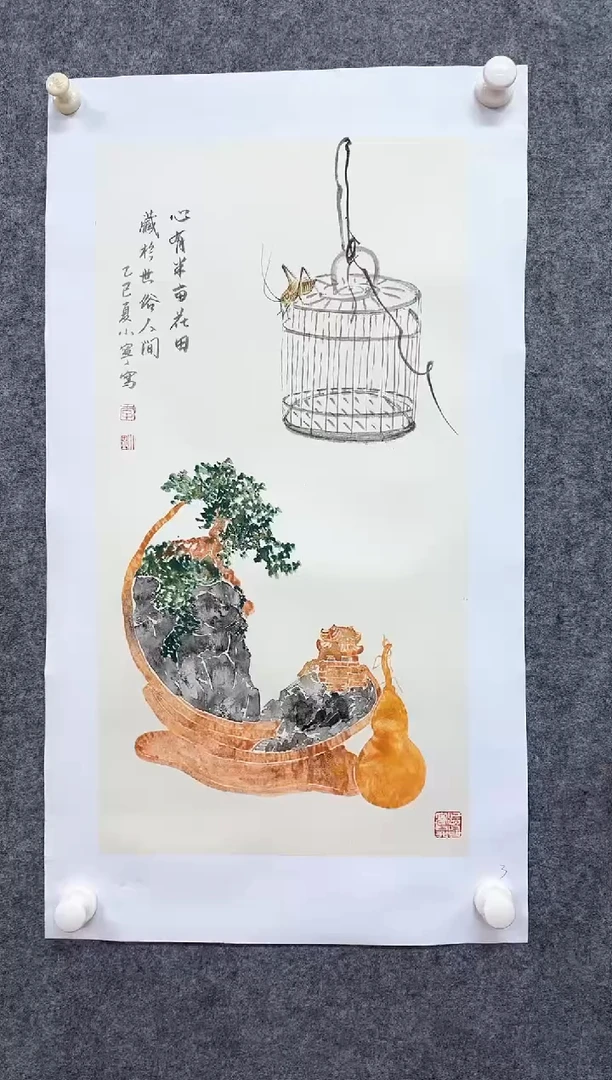 心有半亩花田
藏於世俗人间
乙巳夏小寧写
3